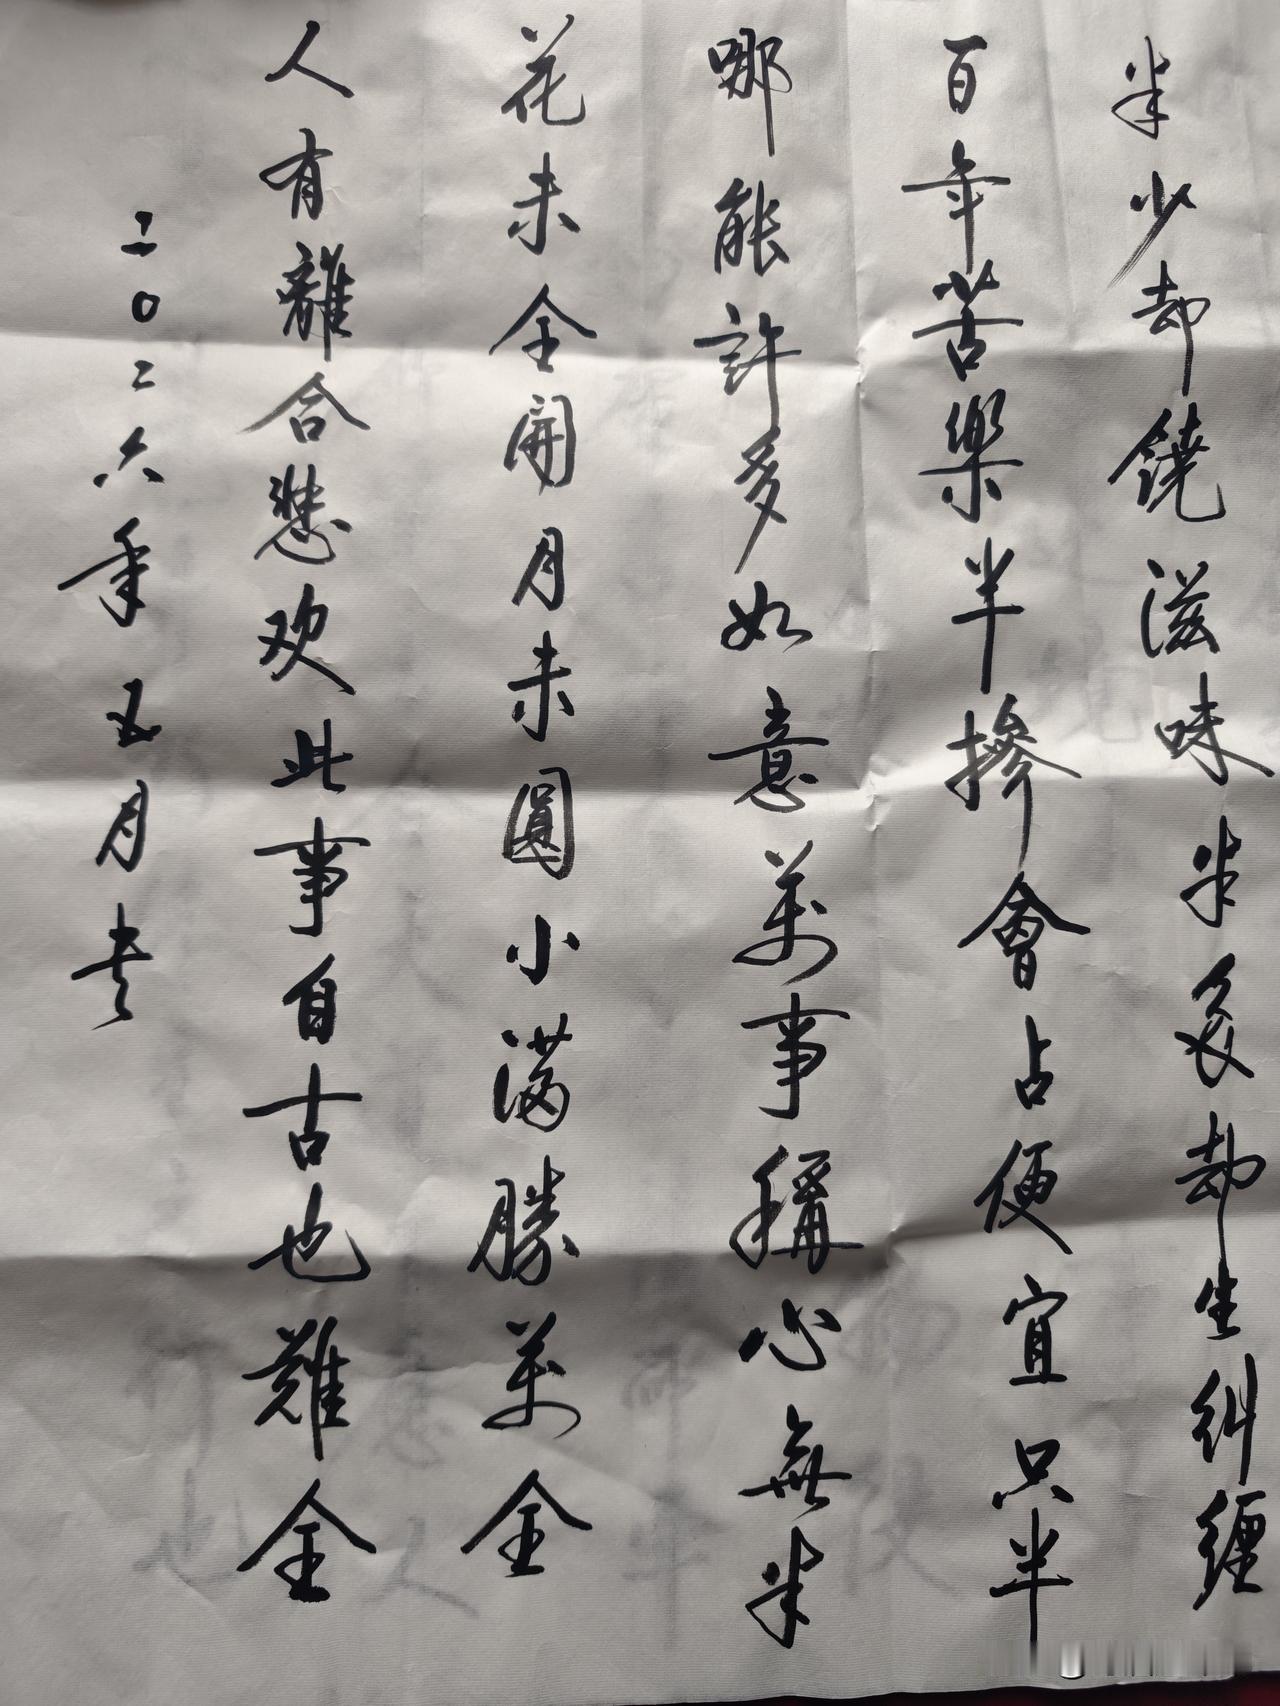 半少却饒滋味半多却生糾缠
百年苦樂半摻會占便宜只半
哪能許多如意萬事稱心無半
花未全開月未圓小满勝萬全
人有離合悲欢此事自古也難全
二〇二六年五月书